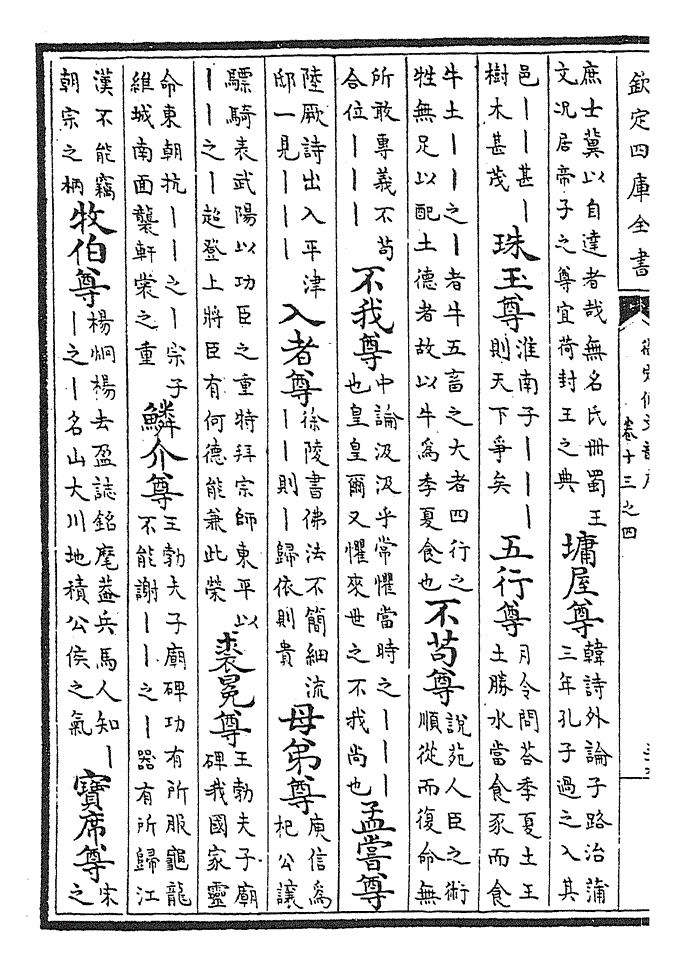 欽定四庫全書
卷十三之四
庶士冀以自達者哉無名氏冊蜀王文况居帝子之尊宜荷封王之典 墉屋尊 韓詩外論子路治蒲三年孔子過之入其
邑｜｜甚｜樹木甚茂 珠玉尊 淮南子｜｜｜則天下爭矣 五行尊 月令問荅季夏土王土勝水當食豕而食
牛土｜｜之｜者牛五畜之大者四行之牲無足以配土德者故以牛為季夏食也 不苟尊 說苑人臣之術順從而復命無
所敢專義不苟合位｜｜｜ 不我尊 中論汲汲乎常懼當時之｜｜｜也皇皇爾又懼來世之不我尚也 孟嘗尊
陸厥詩出入平津邸一見｜｜｜ 入者尊 徐陵書佛法不簡細流｜｜則｜歸依則貴 母弟尊 庾信為杞公讓
驃騎表武陽以功臣之重特拜宗師東平以｜｜之｜超登上將臣有何德能兼此榮 裘冕尊 王勃夫子廟碑我國家靈
命東朝抗｜｜之｜宗子維城南面襲軒裳之重 鱗介尊 王勃夫子廟碑功有所服龜龍不能謝｜｜之｜器有所歸江
漢不能竊朝宗之柄 牧伯尊 楊炯楊去盈誌銘麾葢兵馬人知｜｜之｜名山大川地積公侯之氣 寶席尊 宋之